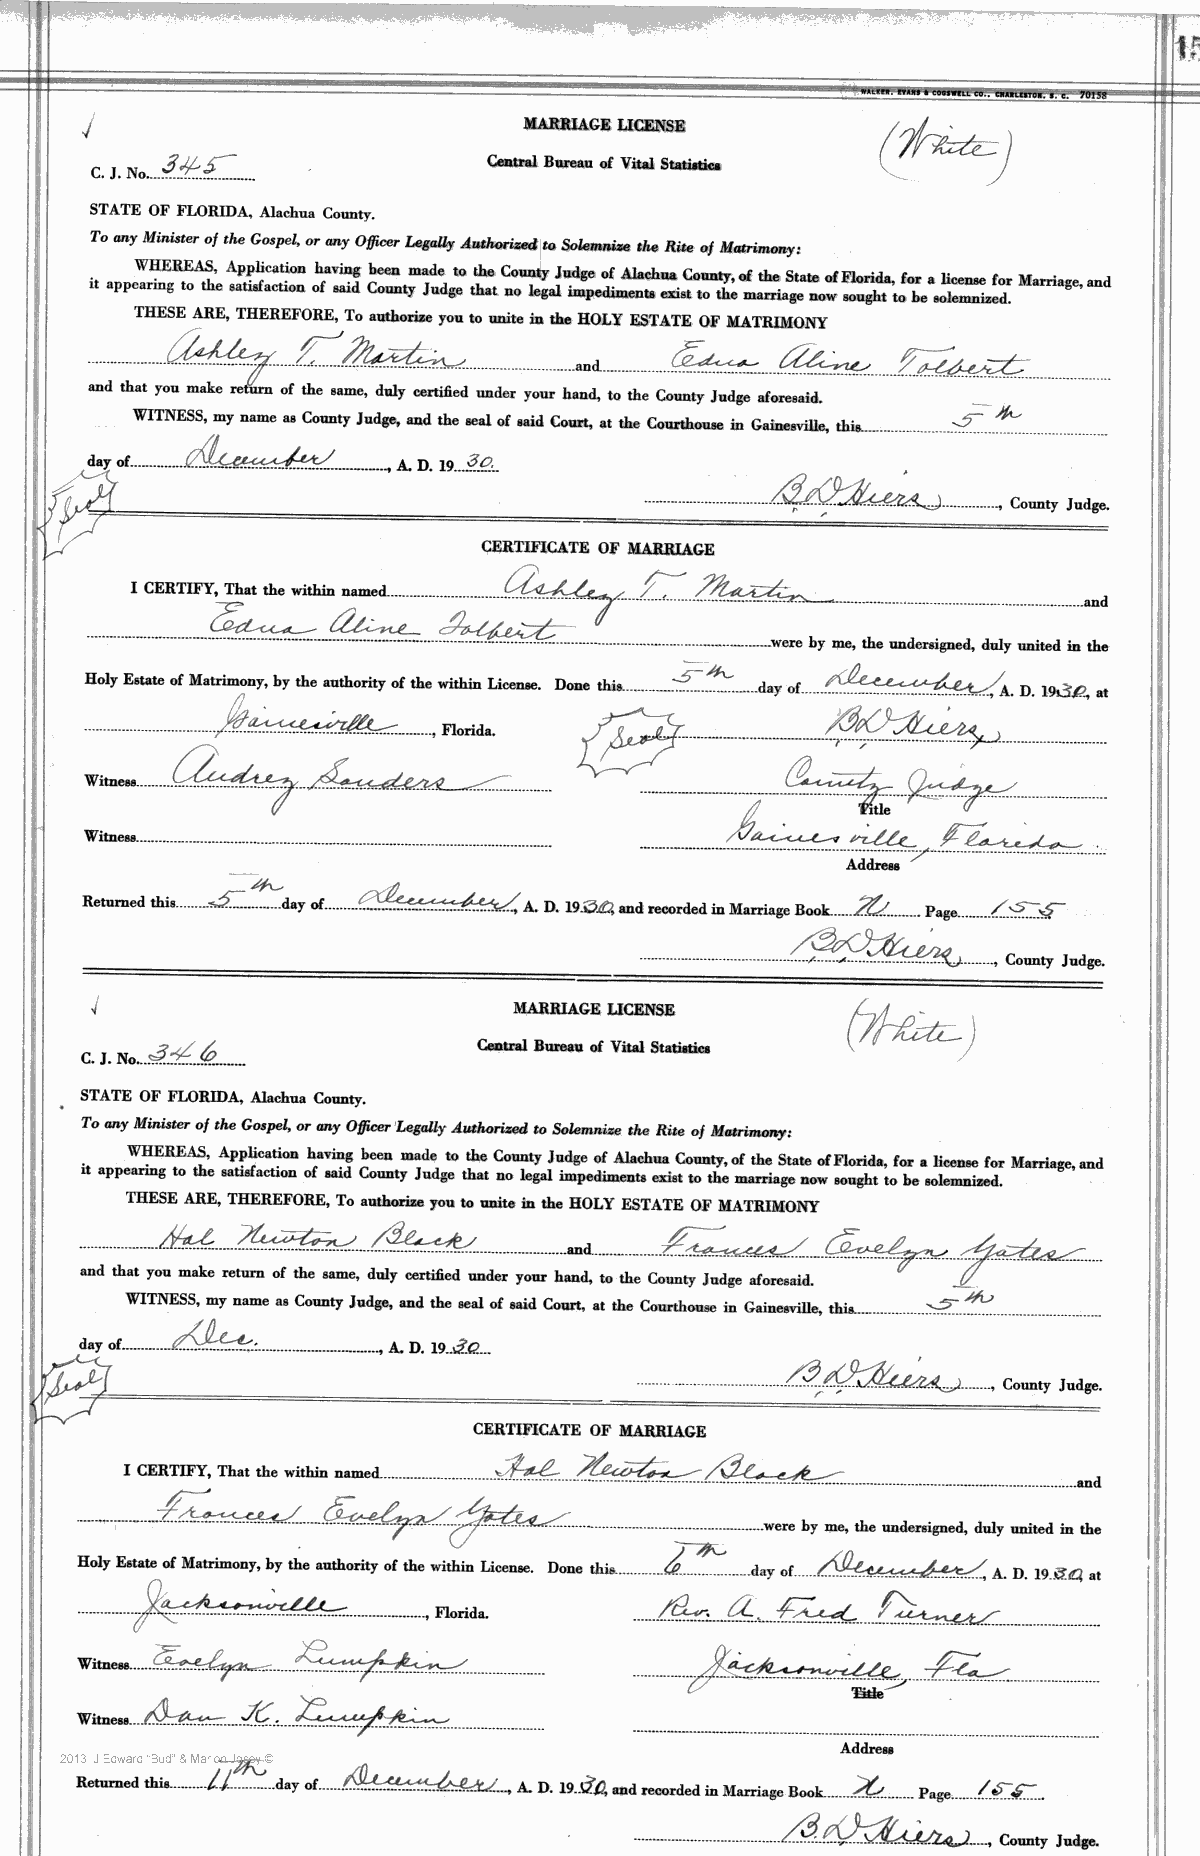 15
WALKER, EVANS & COGSWELL CO., CHARLESTON, S. C. 70158
MARRIAGE LICENSE
(White)
Central Bureau of Vital Statistics
C. J. No. 345
STATE OF FLORIDA, Alachua County.
To any Minister of the Gospel, or any Officer Legally Authorized to Solemnize the Rite of Matrimony:
WHEREAS, Application having been made to the County Judge of Alachua County, of the State of Florida, for a license for Marriage, and
it appearing to the satisfaction of said County Judge that no legal impediments exist to the marriage now sought to be solemnized.
THESE ARE, THEREFORE, To authorize you to unite in the HOLY ESTATE OF MATRIMONY
Ashley T. Martin and Edna Aline Tolbert
and that you make return of the same, duly certified under your hand, to the County Judge aforesaid.
WITNESS, my name as County Judge, and the seal of said Court, at the Courthouse in Gainesville, this 5th
day of December, A. D. 1930.
Seal
B. D. Hiers, County Judge.
CERTIFICATE OF MARRIAGE
I CERTIFY, That the within named Ashley T. Martin and
Edna Aline Tolbert were by me, the undersigned, duly united in the
Holy Estate of Matrimony, by the authority of the within License. Done this 5th day of December, A. D. 1930, at
Gainesville, Florida. Seal B. D. Hiers,
Witness Audrey Sanders County Judge
Title
Witness Gainesville, Florida.
Address
Returned this 5th day of December, A. D. 1930, and recorded in Marriage Book N Page 155
B. D. Hiers, County Judge.
MARRIAGE LICENSE
(White)
Central Bureau of Vital Statistics
C. J. No. 346
STATE OF FLORIDA, Alachua County.
To any Minister of the Gospel, or any Officer Legally Authorized to Solemnize the Rite of Matrimony:
WHEREAS, Application having been made to the County Judge of Alachua County, of the State of Florida, for a license for Marriage, and
it appearing to the satisfaction of said County Judge that no legal impediments exist to the marriage now sought to be solemnized.
THESE ARE, THEREFORE, To authorize you to unite in the HOLY ESTATE OF MATRIMONY
Hal Newton Black and Frances Evelyn Yates
and that you make return of the same, duly certified under your hand, to the County Judge aforesaid.
WITNESS, my name as County Judge, and the seal of said Court, at the Courthouse in Gainesville, this 5th
day of Dec., A. D. 1930
Seal
B. D. Hiers, County Judge.
CERTIFICATE OF MARRIAGE
I CERTIFY, That the within named Hal Newton Black and
Frances Evelyn Yates were by me, the undersigned, duly united in the
Holy Estate of Matrimony, by the authority of the within License. Done this 6th day of December, A. D. 1930, at
Jacksonville, Florida. Rev. A. Fred Turner
Witness Evelyn Lumpkin Jacksonville, Fla
Title
Witness Dan K. Lumpkin
Address
2013 J Edward "Bud" & Marion Josey ©
Returned this 11th day of December, A. D. 1930, and recorded in Marriage Book N Page 155
B. D. Hiers, County Judge.